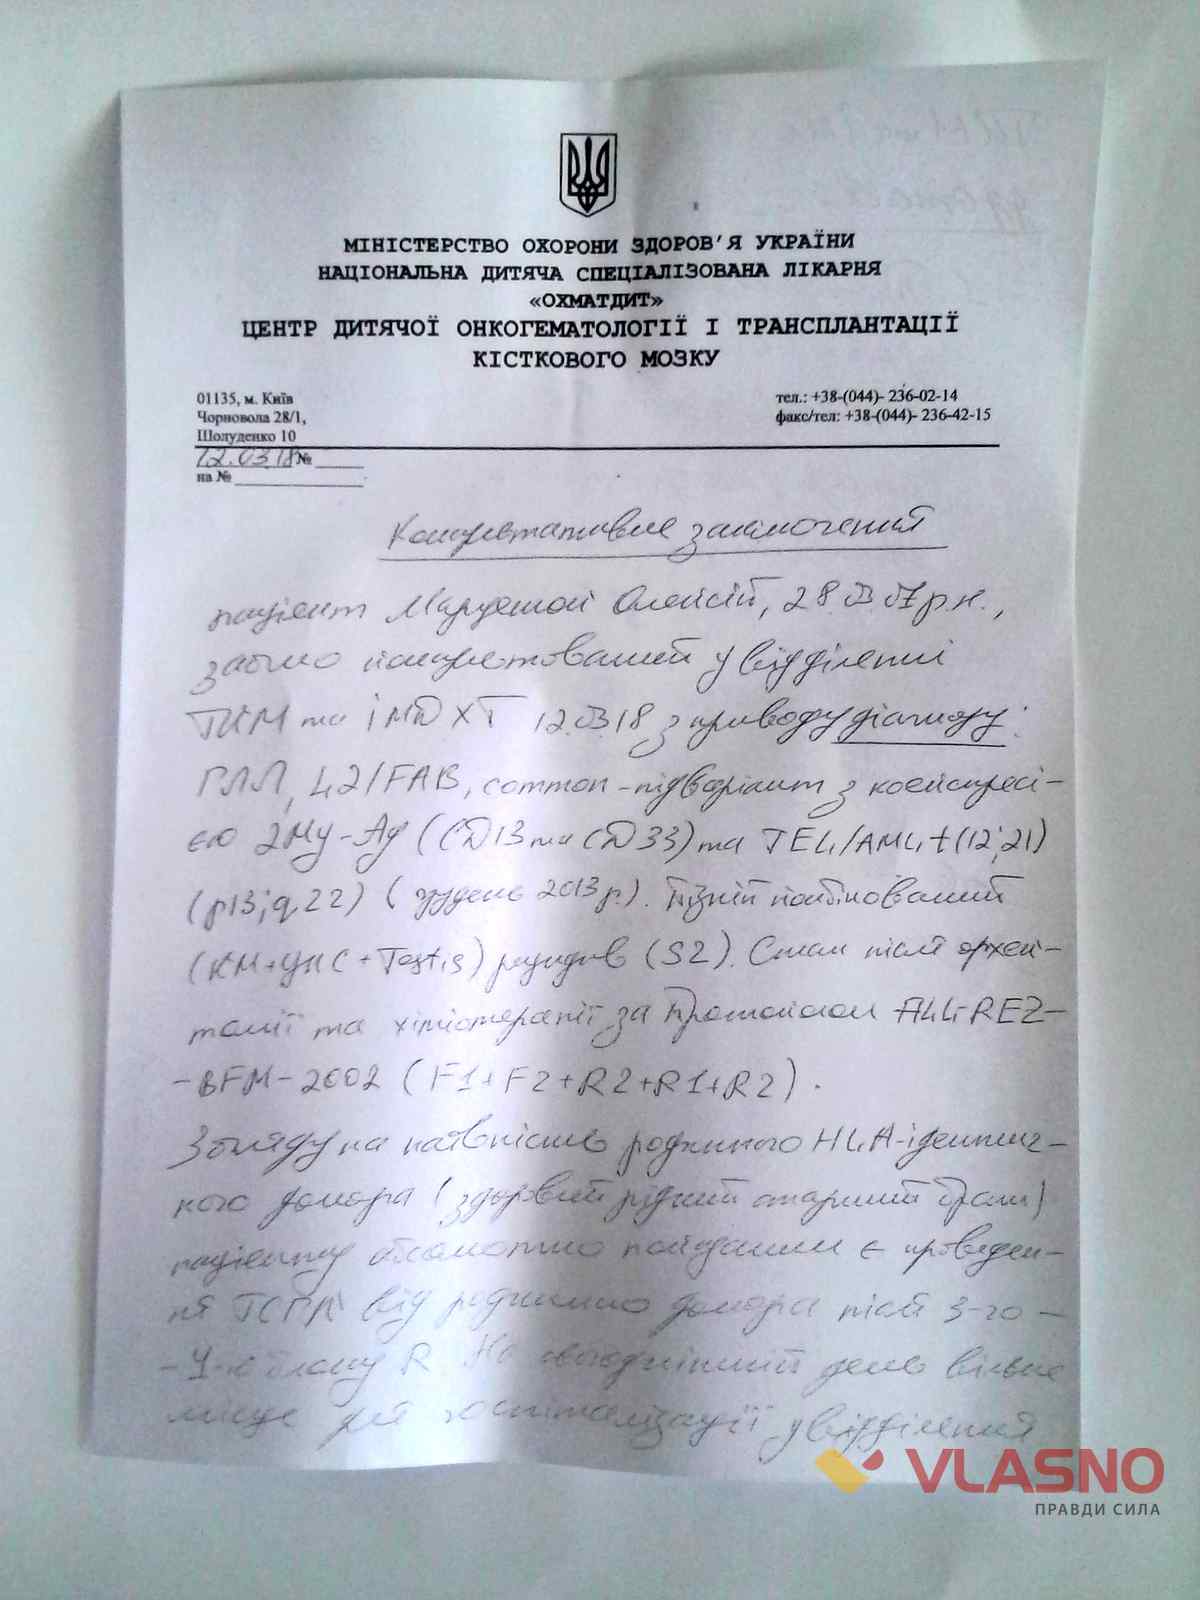 МІНІСТЕРСТВО ОХОРОНИ ЗДОРОВ'Я УКРАЇНИ
НАЦІОНАЛЬНА ДИТЯЧА СПЕЦІАЛІЗОВАНА ЛІКАРНЯ
«ОХМАТДИТ»
ЦЕНТР ДИТЯЧОЇ ОНКОГЕМАТОЛОГІЇ І ТРАНСПЛАНТАЦІЇ
КІСТКОВОГО МОЗКУ
01135, м. Київ
Чорновола 28/1,
Шолуденко 10
тел.: +38-(044)- 236-02-14
факс/тел: +38-(044)- 236-42-15
12.03.18 №
на №
Консультативне заключення
пацієнт Олексій, 28. р.н.,
заочно консультований у відділенні
ТКМ та 18 з приводу діагнозу:
ГЛЛ, L2/FAB, common-підваріант з коекспресі-
єю 2My-Ag (CD13 та CD33) та TEL/AML t(12;21)
(p13;q22) (грудень 2013р.). Пізній комбінований
(КМ+ЦНС+Testis) рецидив (S2). Стан після орхек-
томії та хіміотерапії за протоколом ALL-REZ-
-BFM-2002 (F1+F2+R2+R1+R2).
З огляду на наявність родинного HLA-ідентич-
ного донора (здоровий рідний старший брат)
пацієнту абсолютно показанним є проведен-
ня ТСГК від родинного донора після 3-го-
-4-го блоку R. На сьогоднішній день вільне
місце для госпіталізації у відділення
VLASNO
ПРАВДИ СИЛА